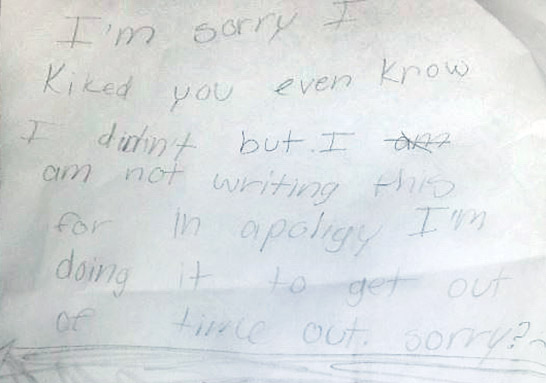 I'm sorry I
Kiked you even Know
I didin't but. I am
am not writing this
for in apoligy I'm
doing it to get out
of time out. sorry?